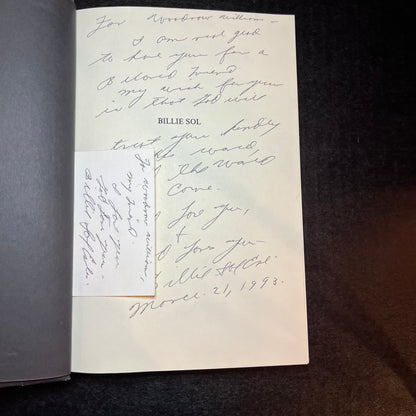 For Woodrow William -
I am real glad
to have you for a
Beloved friend
my wish for you
is that God will
BILLIE SOL
treat you kindly
this world,
The World
Come.
I love you,
+
God loves you -
Billie Sol Estes
March 21, 1993.
For Woodrow William,
my friend.
I love you
God love you
Billie Sol Estes.